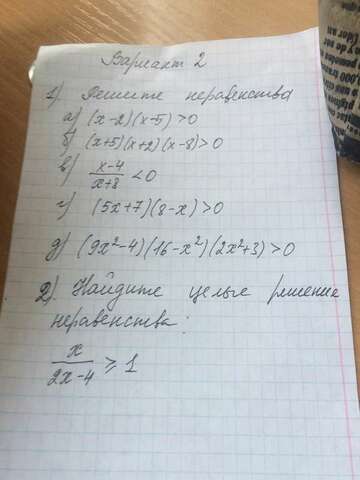 Вариант 2
1) Решите неравенства
а) (x-2)(x-5)>0
б) (x+5)(x+2)(x-8)>0
в) x-4/x+8 <0
г) (5x+7)(8-x)>0
д) (9x²-4)(16-x²)(2x²+3)>0
2) Найдите целые решение
неравенства:
x/2x-4 ≥ 1